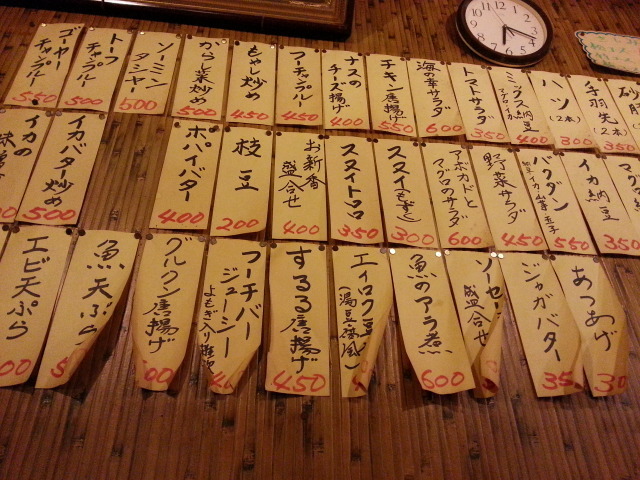 ゴーヤーチャンプルー 550
トーフチャンプルー 500
ソーミンタシヤー 500
からし菜炒め 500
もやし炒め 450
フーチャンプルー 450
ナスのチーズ揚げ 400
チキン唐揚げ 550
海の幸サラダ 600
トマトサラダ 350
ミックス納豆 400
ハツ(2本) 300
手羽先(2本)
砂肝
イカの
イカバター炒め 500
ポパイバター 400
枝豆 200
お新香盛合せ 400
スヌイトロロ 350
スヌイ(もずく) 300
アボカドとマグロのサラダ 600
野菜サラダ 450
バクダン 550
イカ納豆 350
エビ天ぷら
魚天ぷら
グルクン唐揚げ
フーチバージューシー
よもぎ入り雑炊
するる唐揚げ 450
エイロク豆
魚のアラ煮 600
ソーセージ盛合せ
ジャガバター 35
あつあげ